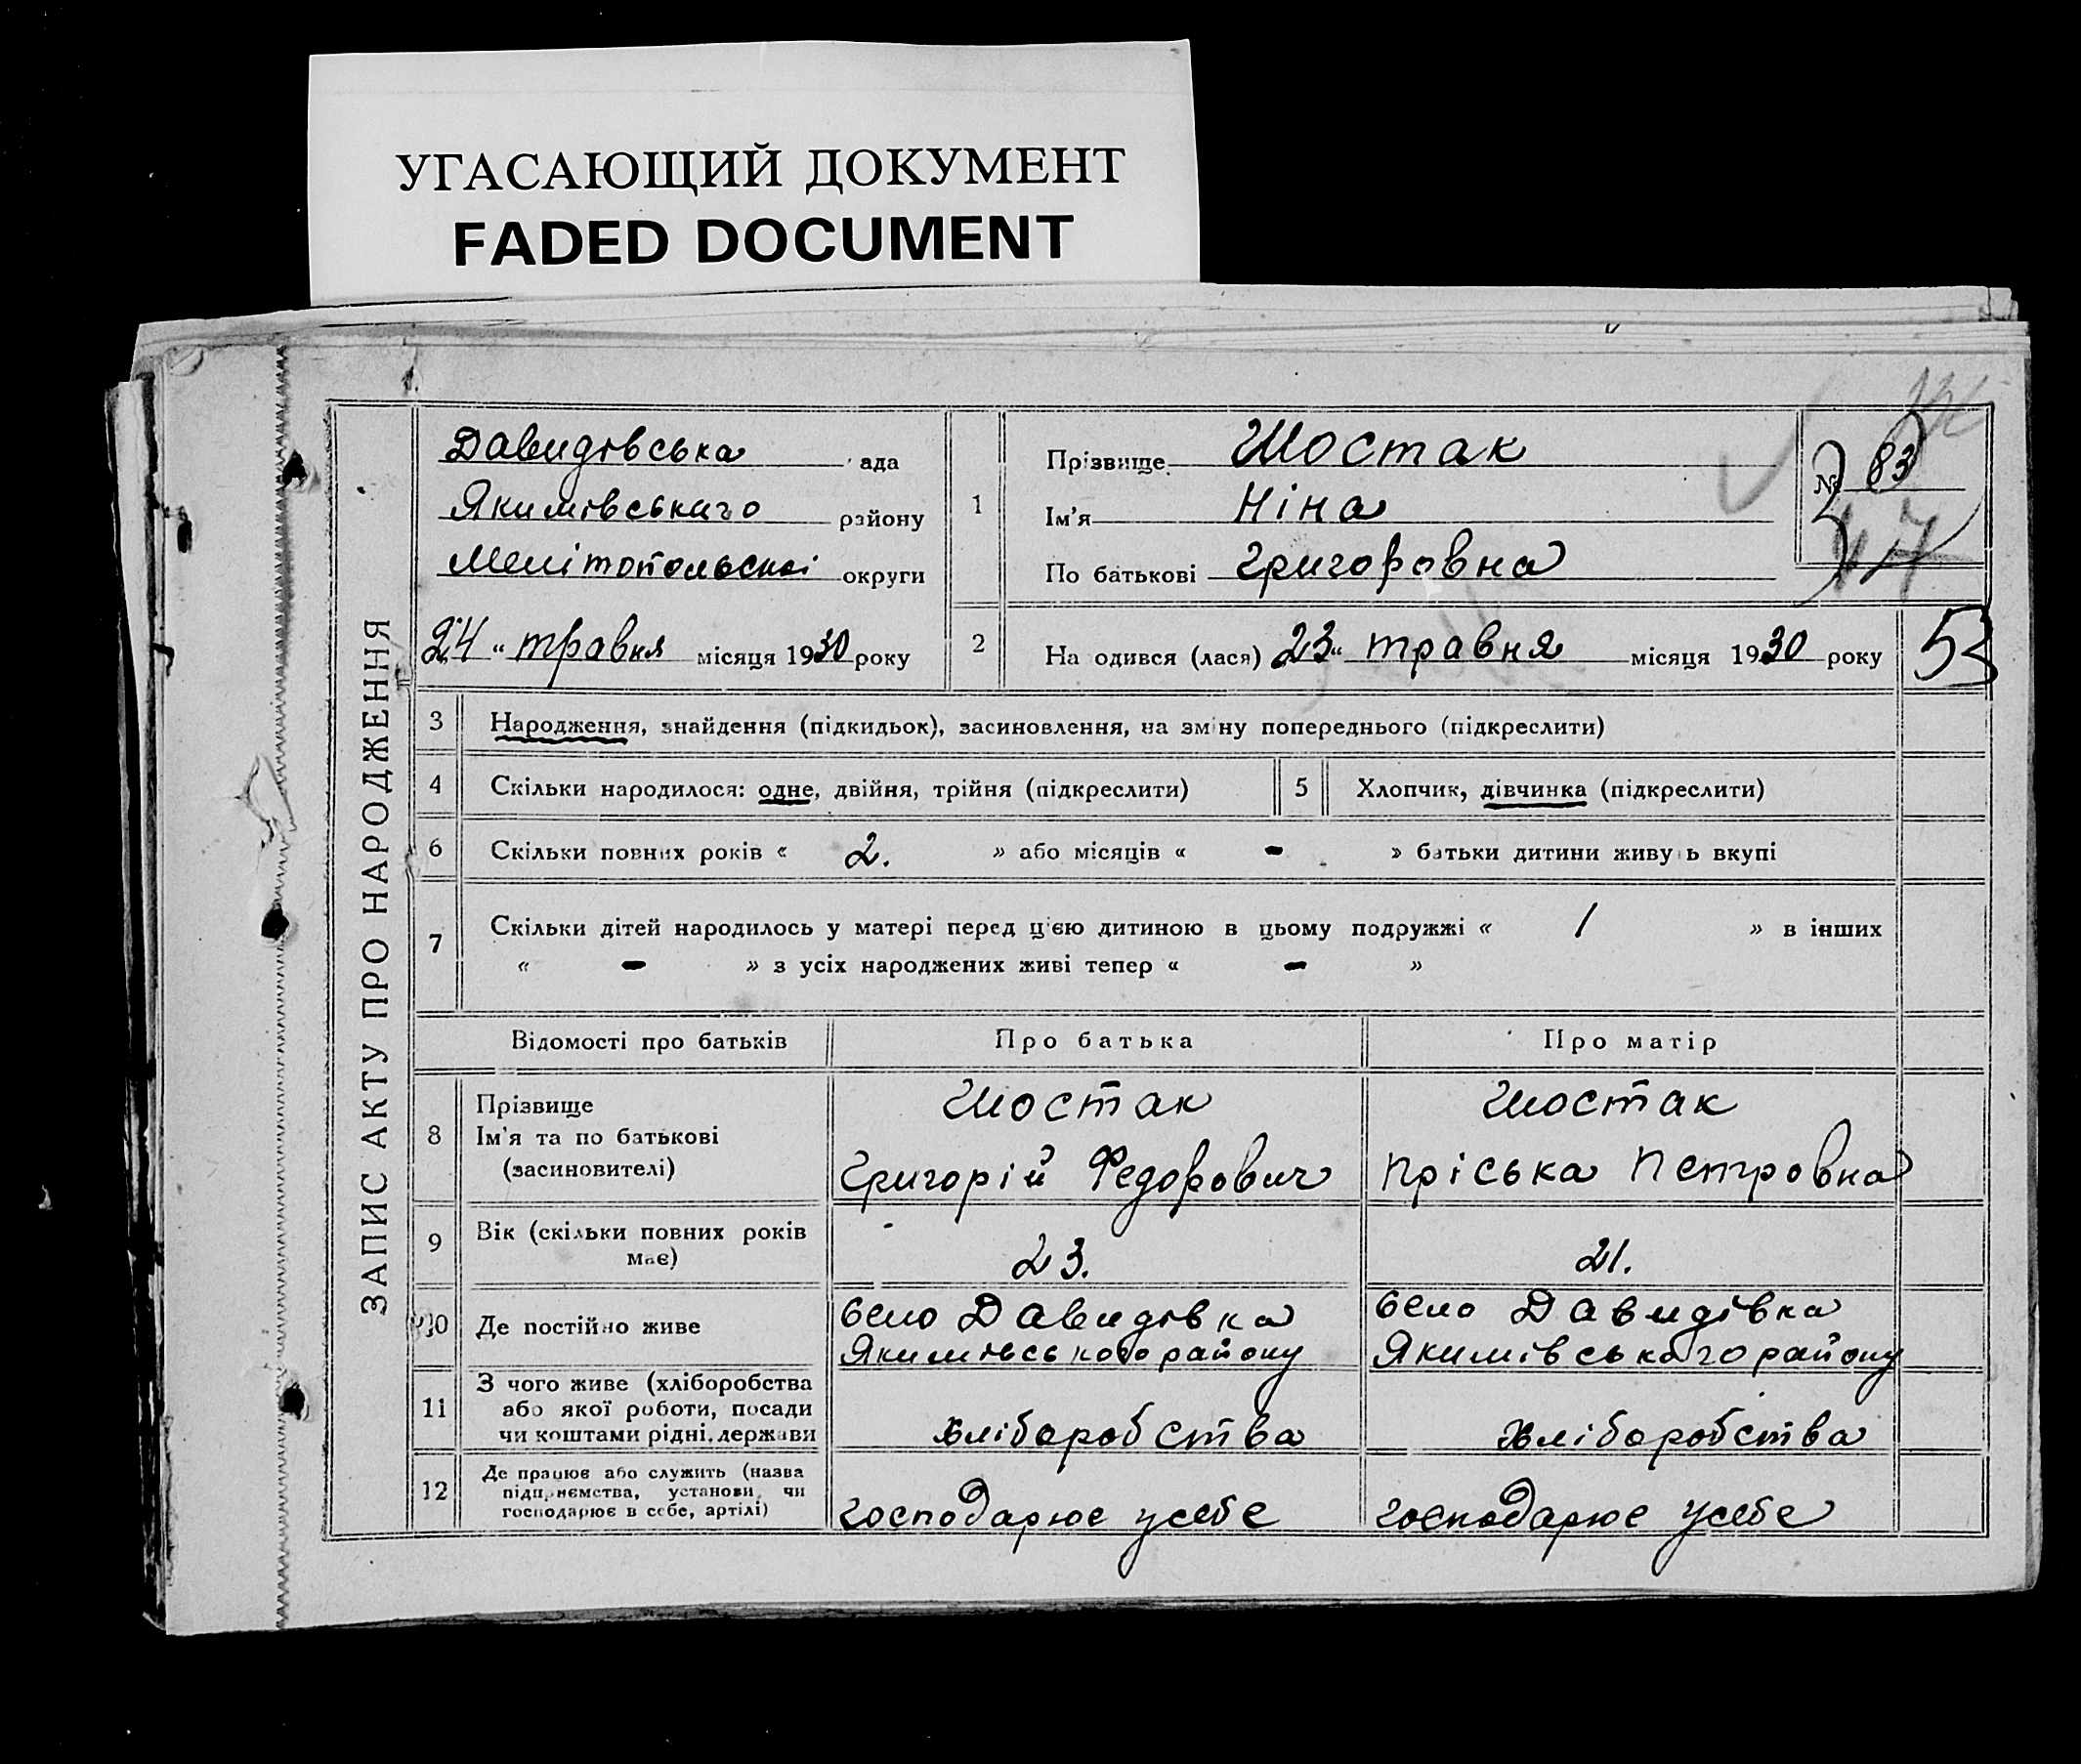 УГАСАЮЩИЙ ДОКУМЕНТ
FADED DOCUMENT
ЗАПИС АКТУ ПРО НАРОДЖЕННЯ
Давидівська ада
Якимівського району
Мелітопольскоі округи
24 " травня місяця 1930 року
1
Прізвище Шостак
Ім'я Ніна
По батькові Григоровна
№ 83
47
2 На одився (лася) 23 " травня місяця 1930 року
53
3 Народження, знайдення (підкидьок), засиновлення, на зміну попереднього (підкреслити)
4 Скільки народилося: одне, двійня, трійня (підкреслити)
5 Хлопчик, дівчинка (підкреслити)
6 Скільки повних років « 2. » або місяців « - » батьки дитини живу ь вкупі
7 Скільки дітей народилось у матері перед ц'єю дитиною в цьому подружжі « 1 » в інших
« - » з усіх народжених живі тепер « - »
Відомості про батьків Про батька Про матір
8 Прізвище
Ім'я та по батькові
(засиновителі)
Шостак
Григорій Федорович
Шостак
Пріська Петровна
9 Вік (скільки повних років
має)
23.
21.
10 Де постійно живе
село Давидівка
Якимівського району
село Давидівка
Якимівського району
11 З чого живе (хліборобства
або якої роботи, посади
чи коштами рідні, держави
хліборобства
хліборобства
12 Де працює або служить (назва
підприємства, установи, чи
господарює в себе, артілі)
господарює усебе
господарює усебе